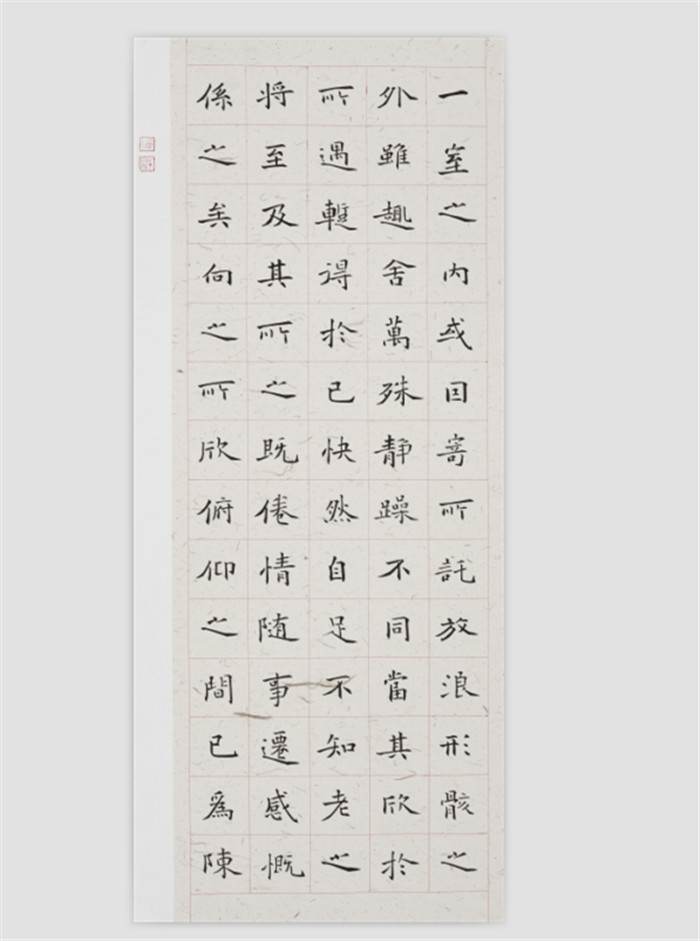 一室之内或因寄所託放浪形骸之
外雖趣舍萬殊静躁不同當其欣於
所遇蹔得於己快然自足不知老之
将至及其所之既倦情随事遷感慨
係之矣向之所欣俯仰之間已為陳